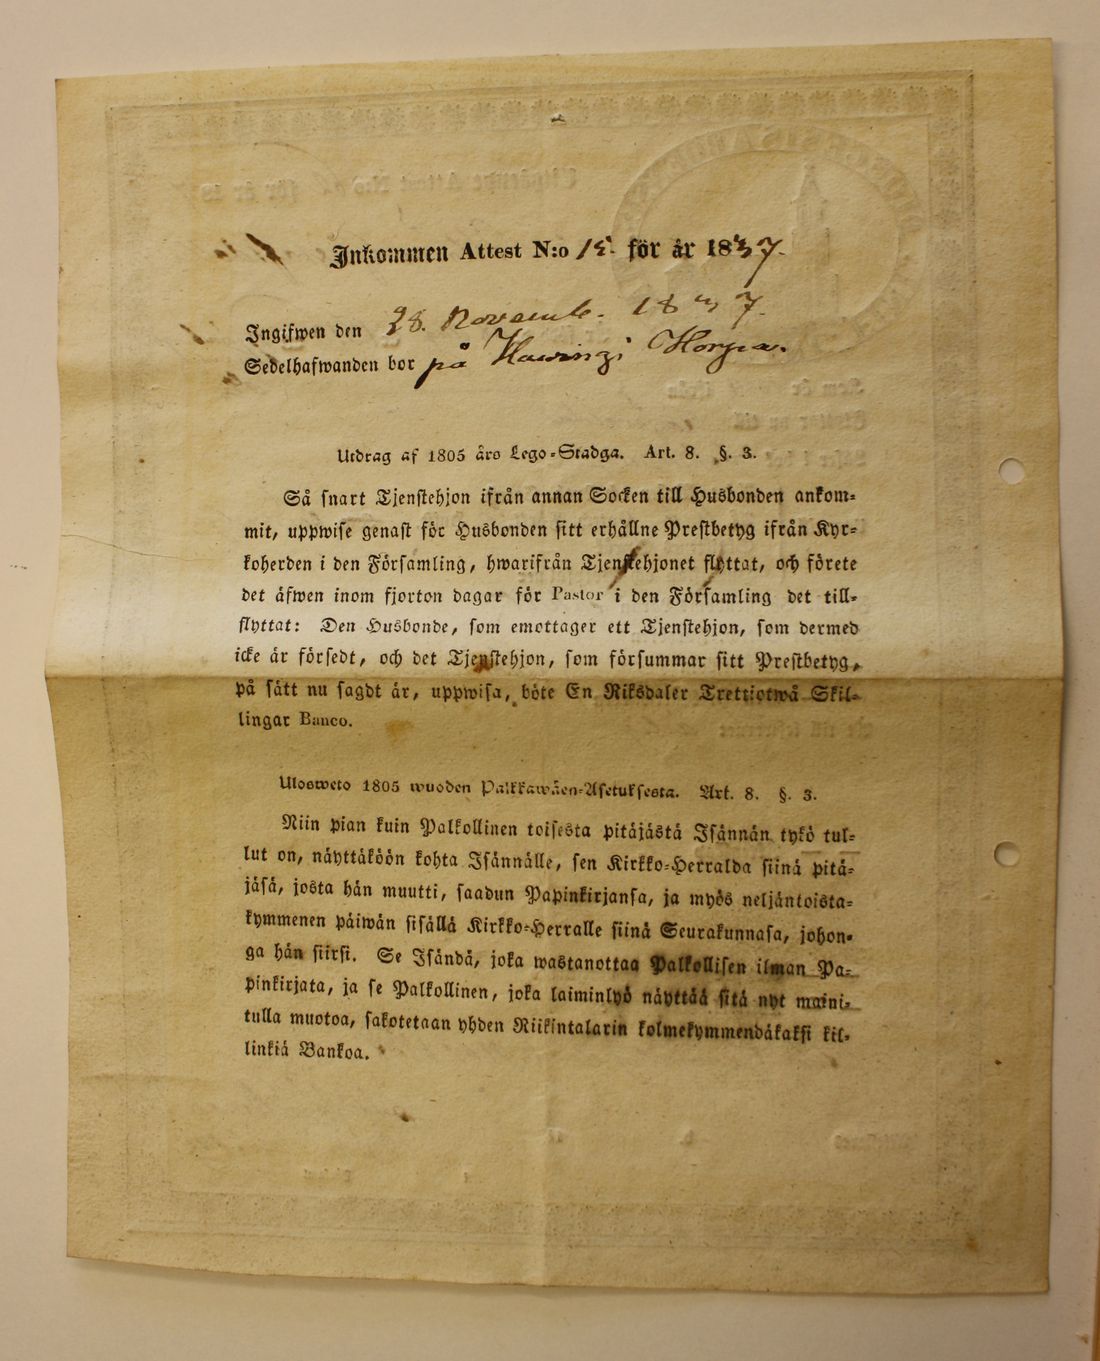 Inkommen Attest N:o 15. för år 1837.
Ingifwen den 28. Novemb. 1837.
Sedelhafwanden bor på
Utdrag af 1805 års Lego-Stadga. Art. 8. §. 3.
Så snart Tjenstehjon ifrån annan Socken till Husbonden ankom-
mit, uppwise genast för Husbonden sitt erhållne Prestbetyg ifrån Kyr-
koherden i den Församling, hwarifrån Tjenstehjonet flyttat, och förete
det äfwen inom fjorton dagar för Pastor i den Församling det till-
flyttat: Den Husbonde, som emottager ett Tjenstehjon, som dermed
icke är försedt, och det Tjenstehjon, som försummar sitt Prestbetyg,
på sätt nu sagdt är, uppwisa, böte En Riksdaler Trettiotwå Skil-
lingar Banco.
Ulosweto 1805 wuoden Palkkawäen-Asetuksesta. Art. 8. §. 3.
Niin pian kuin Palkollinen toisesta pitäjästä Isännän tykö tul-
lut on, näyttäköön kohta Isännälle, sen Kirkko-Herralda siinä pitä-
jäsä, josta hän muutti, saadun Papinkirjansa, ja myös neljäntoista-
kymmenen päiwän sisällä Kirkko-Herralle siinä Seurakunnasa, johon-
ga hän siirsi. Se Isändä, joka wastanottaa Palkollisen ilman Pa-
pinkirjata, ja se Palkollinen, joka laiminlyö näyttää sitä nyt maini-
tulla muotoa, sakotetaan yhden Riikintalarin kolmekymmendäkaksi kil-
linkiä Bankoa.